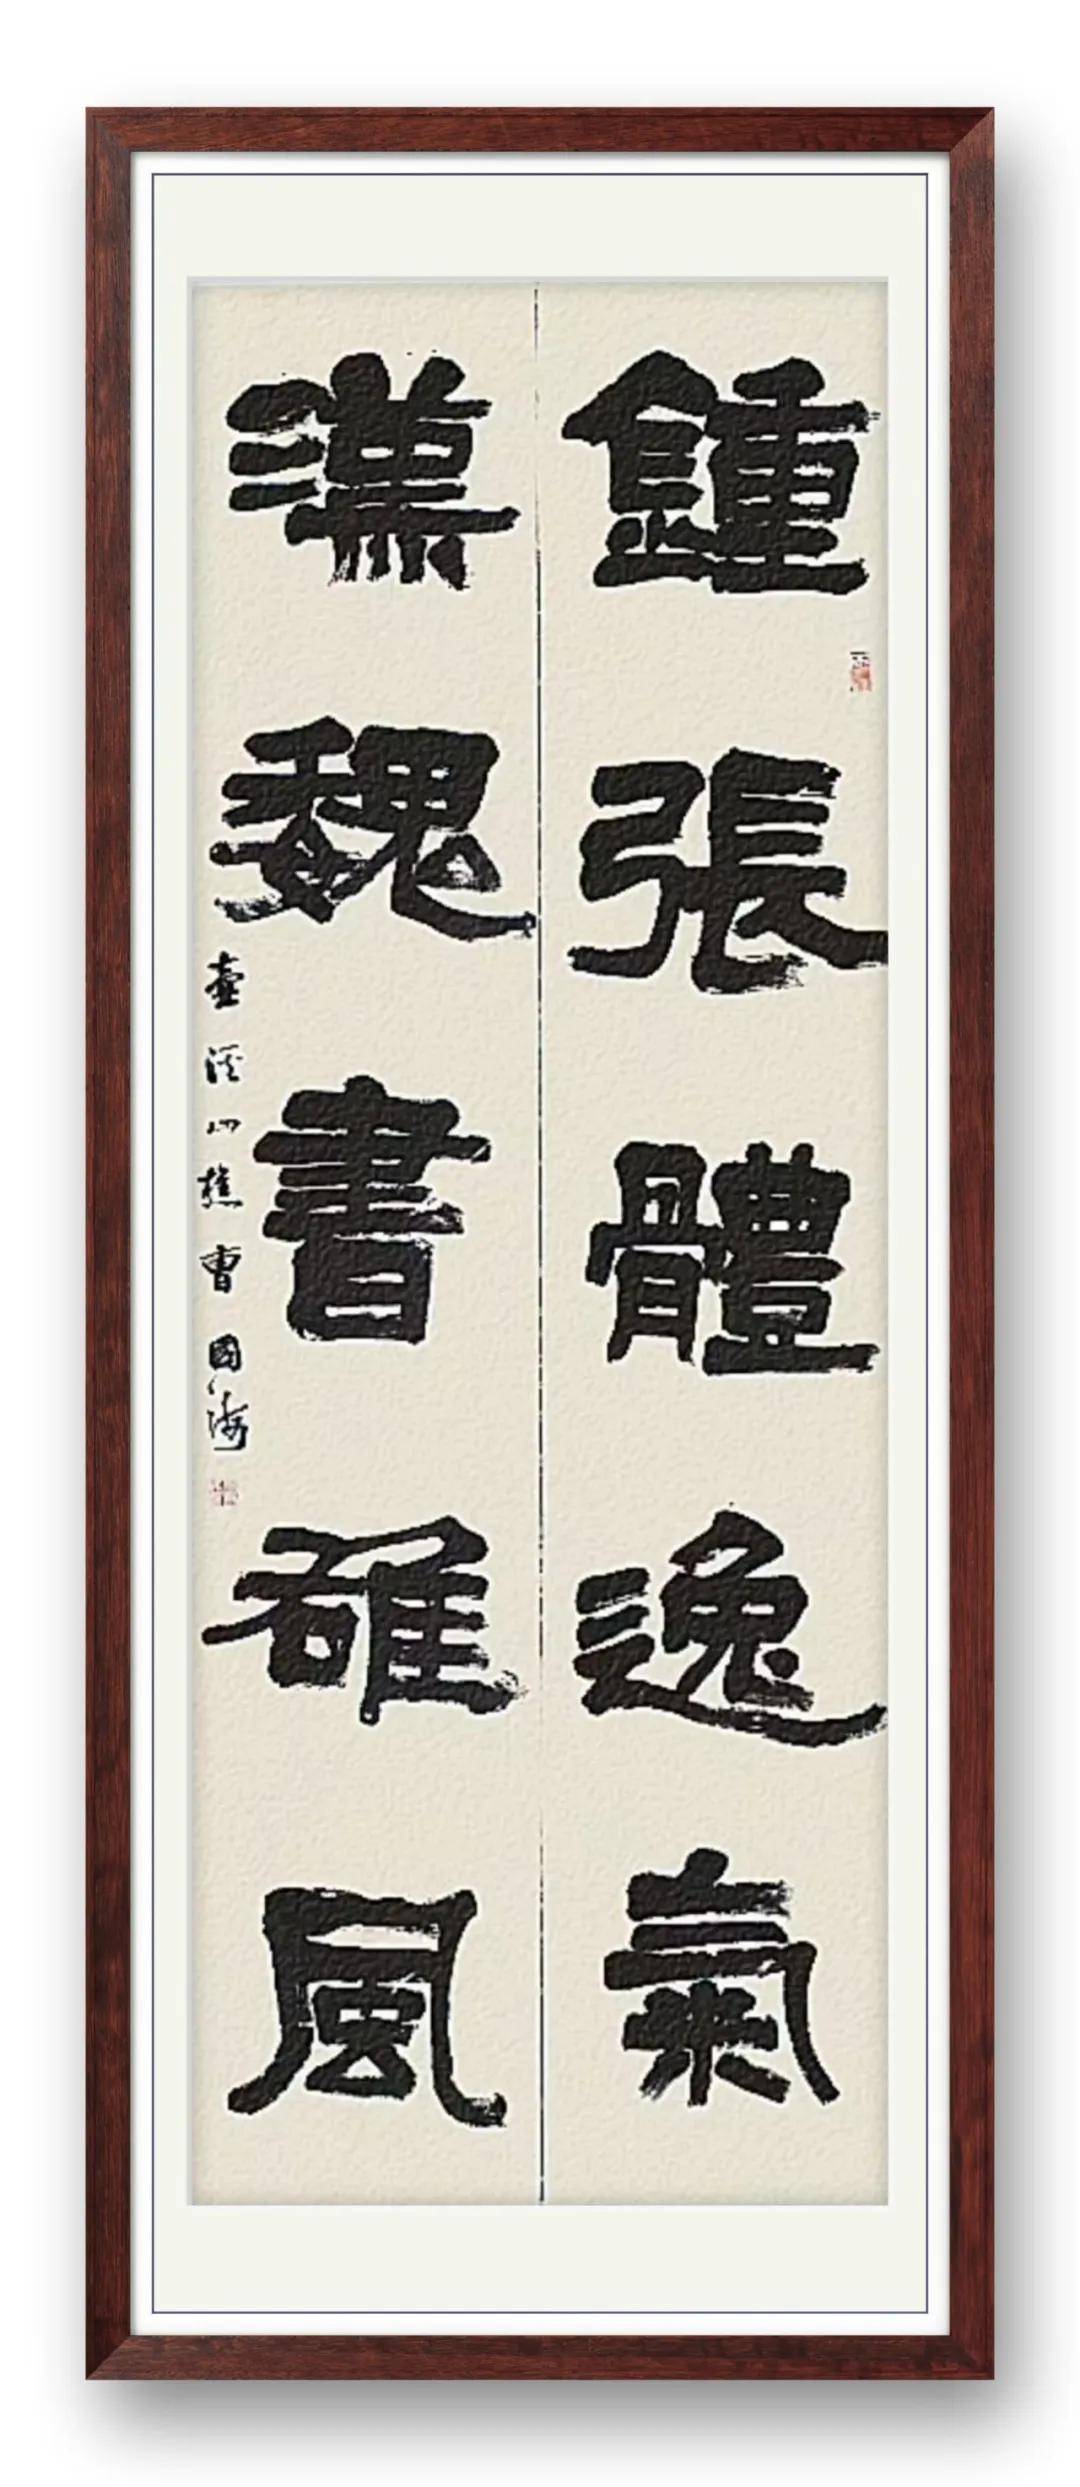 鍾張體逸氣
漢魏書雄風
壺溪山樵曹國海